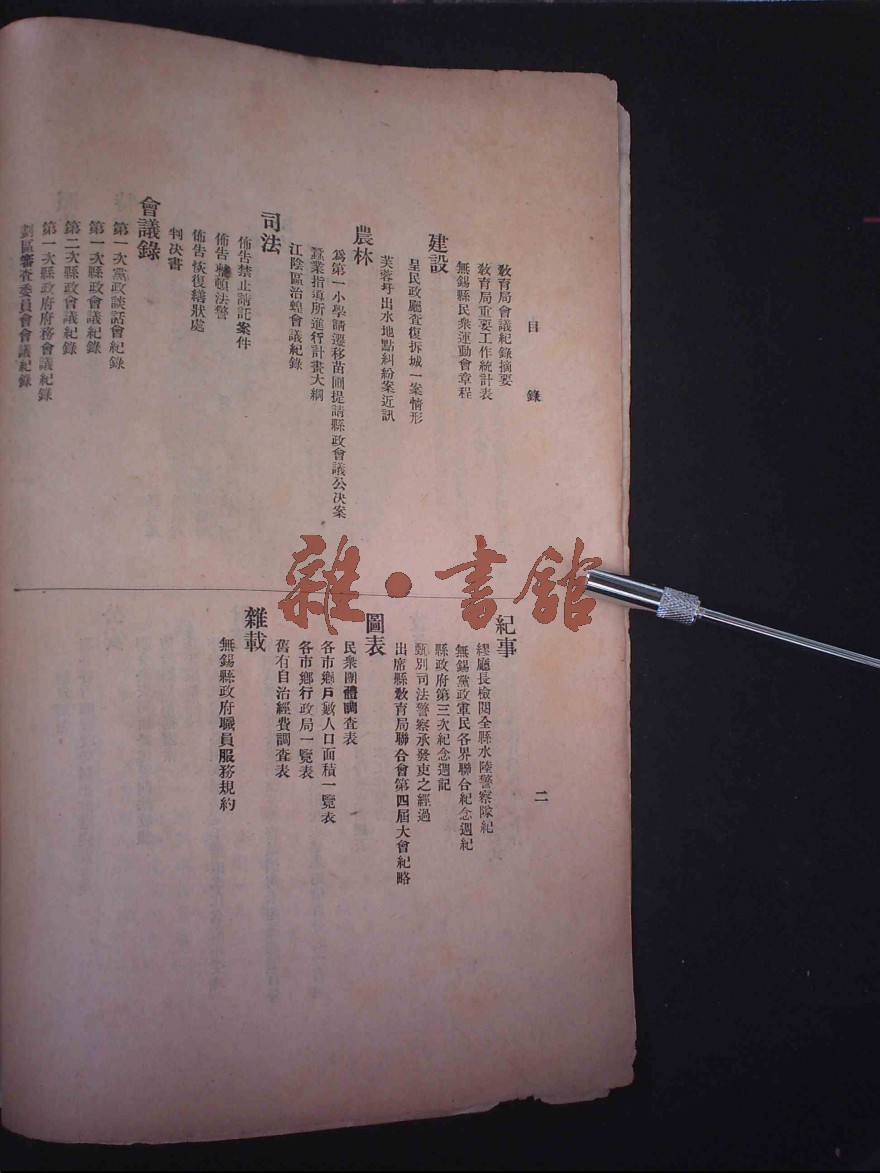 目錄
教育局會議紀錄摘要
教育局重要工作統計表
無錫縣民衆運動會章程
建設
呈民政廳查復拆城一案情形
芙蓉圩出水地點糾紛案近訊
農林
爲第一小學請遷移苗圃提請縣政會議公決案
蠶業指導所進行計畫大綱
江陰區治蝗會議紀錄
司法
佈告禁止請託案件
佈告整頓法警
佈告恢復繕狀處
判决書
會議錄
第一次黨政談話會紀錄
第一次縣政會議紀錄
第二次縣政會議紀錄
第一次縣政府府務會議紀錄
劃區審查委員會會議紀錄
紀事
繆廳長檢閱全縣水陸警察隊紀
無錫黨政軍民各界聯合紀念週紀
縣政府第三次紀念週記
甄別司法警察承發吏之經過
出席縣教育局聯合會第四屆大會紀略
圖表
民衆團體調查表
各市鄉戶數人口面積一覽表
各市鄉行政局一覽表
舊有自治經費調查表
雜載
無錫縣政府職員服務規約
二
雜·書舘